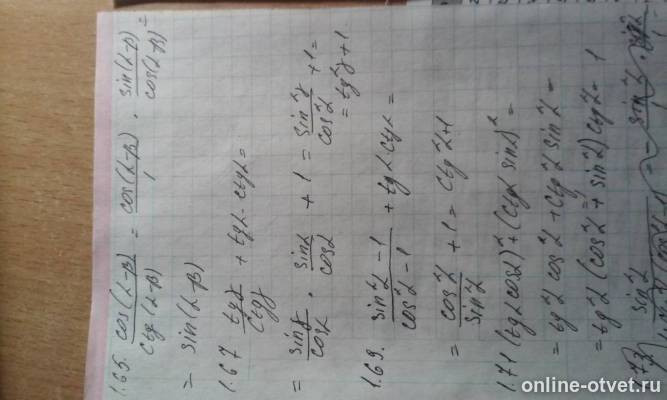 1.65. cos(α-β)/ctg(α-β) = cos(α-β)/1 · sin(α-β)/cos(α-β) =
= sin(α-β)
1.67 tgγ/ctgγ + tgα·ctgα =
= sinγ/cosα · sinα/cosα + 1 = sin²γ/cos²α + 1 =
= tg²γ + 1.
1.69. sin²α-1/cos²α-1 + tgα ctgα =
= cos²α/sin²α + 1 = ctg²α+1
1.71 (tgα cosα)² + (ctgα sinα)² =
= tg²α cos²α + ctg²α sin²α =
= tg²α (cos²α + sin²α) ctg²α = 1
1.73
online-otvet.ru